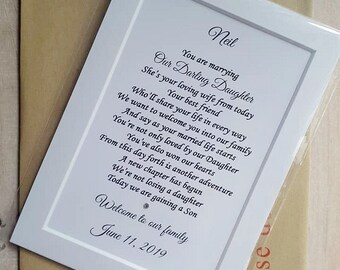 Neil
You are marrying
Our Darling Daughter
She's your loving wife from today
Your best friend
Who'll share your life in every way
We want to welcome you into our family
And say as your married life starts
You're not only loved by our Daughter
You've also won our hearts
From this day forth is another adventure
A new chapter has begun
We're not losing a daughter
Today we are gaining a Son
Welcome to our family
June 11, 2019